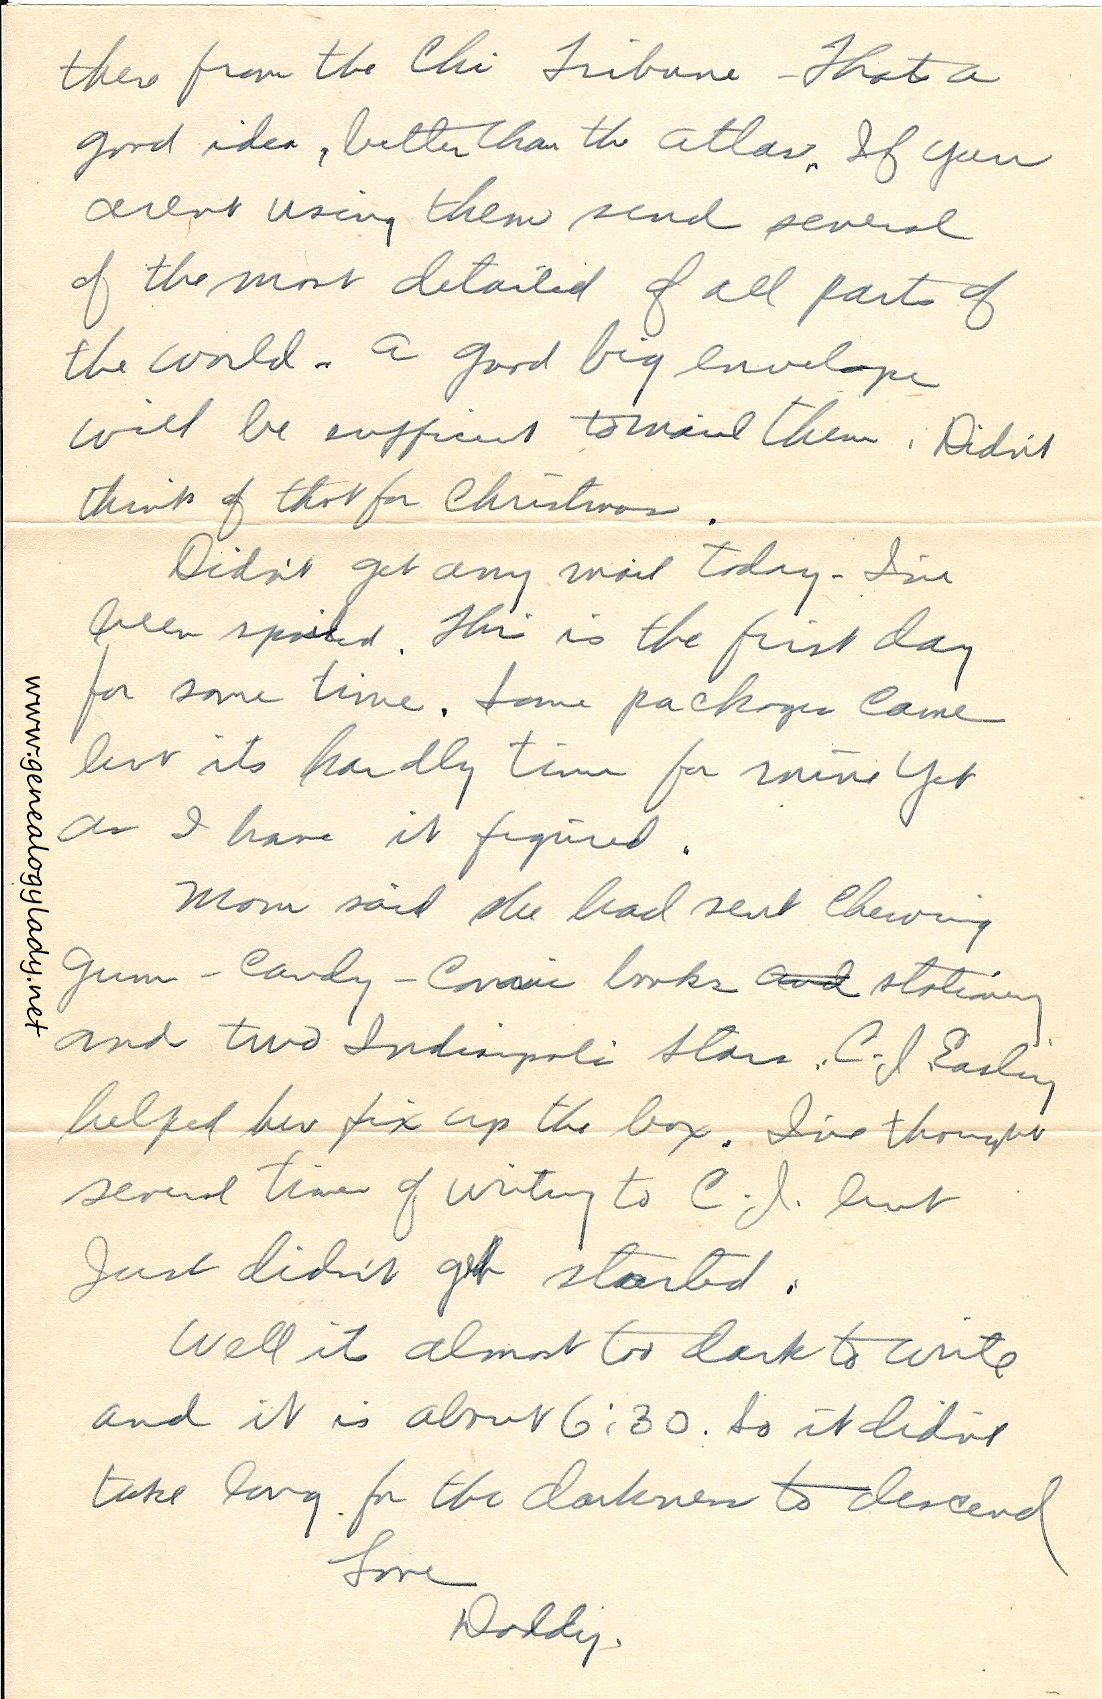 there from the Chi Tribune - Thats a
good idea, better than the atlas. If you
arent using them send several
of the most detailed of all parts of
the world. A good big envelope
will be sufficient to mail them. Didn't
think of that for Christmas.
Didn't get any mail today - I've
been spoiled. This is the first day
for some time. Some packages came
but its hardly time for mine yet
as I have it figured.
Mom said she had sent chewing
gum - candy - comic books and stationery
and two Indianapolis Stars. C.J. Easling
helped her fix up the box. I've thought
several times of writing to C.J. but
just didn't get started.
Well its almost too dark to write
and it is about 6:30. So it didn't
take long for the darkness to descend
Love
Daddy.
www.genealogylady.net